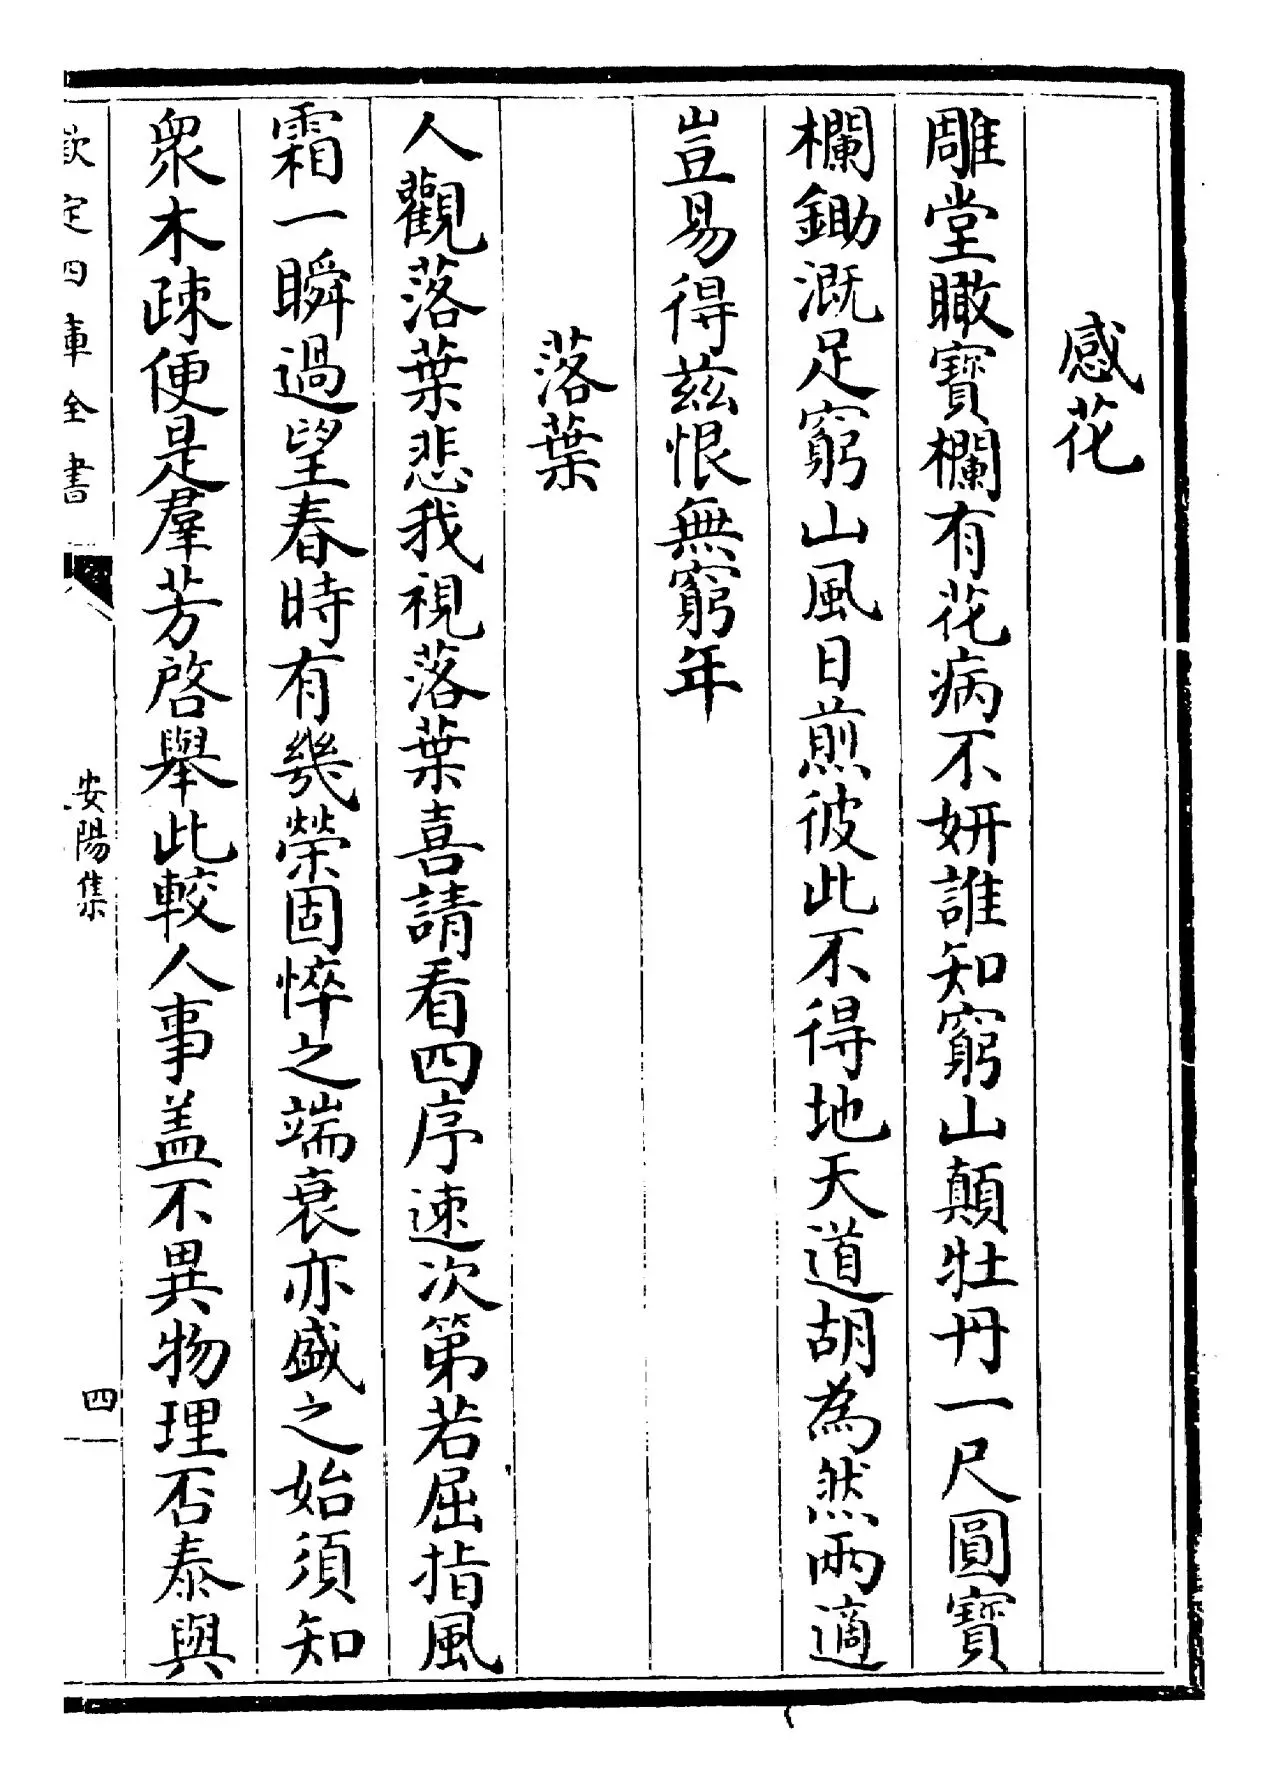 感花
雕堂瞰寶欄有花病不妍誰知窮山顛牡丹一尺圓寶
欄鋤溉足窮山風日煎彼此不得地天道胡為然兩適
豈易得茲恨無窮年
落葉
人觀落葉悲我視落葉喜請看四序速次第若屈指風
霜一瞬過望春時有幾榮固悴之端衰亦盛之始須知
衆木疎便是羣芳啓舉此較人事盖不異物理否泰與
欽定四庫全書
安陽集
四